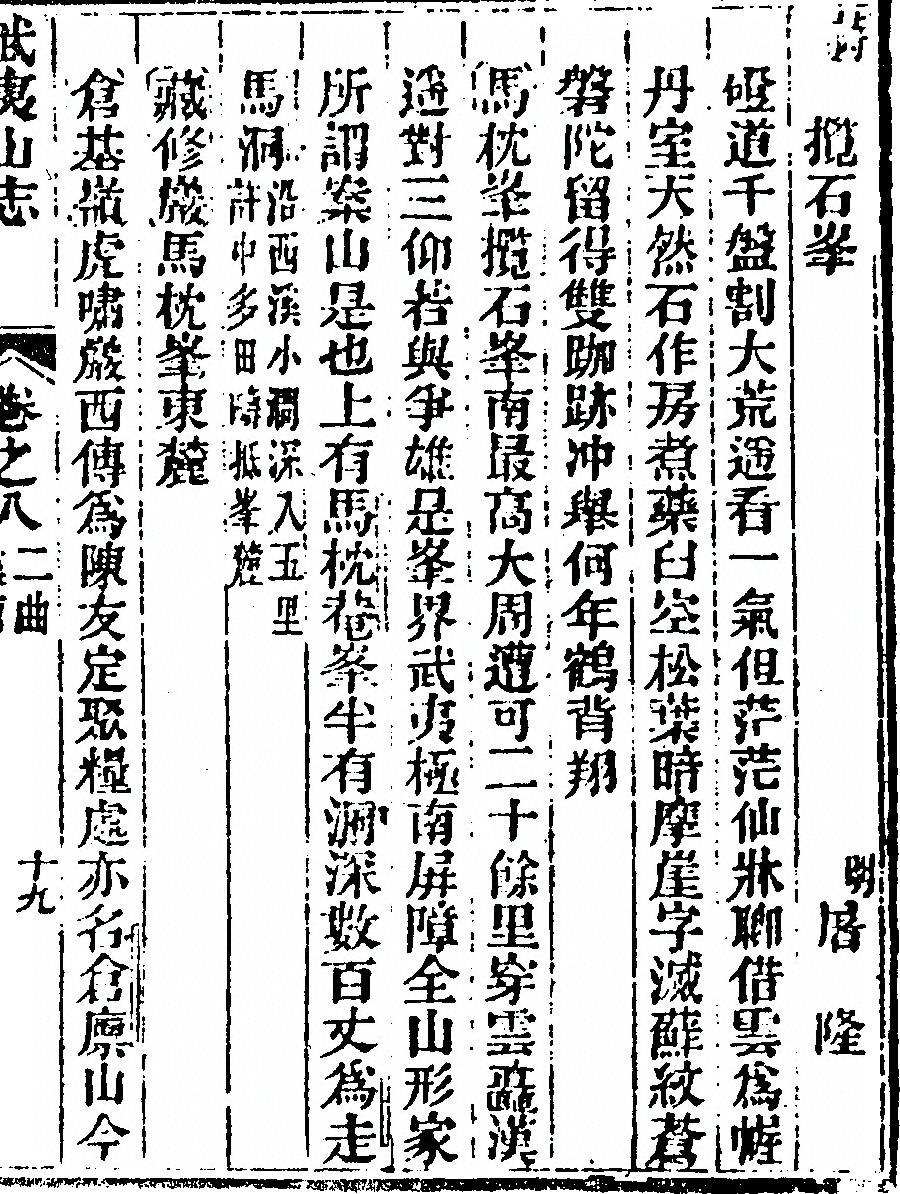 詩
攬石峯
明屠隆
磴道千盤割大荒遥看一氣但茫茫仙牀聊借雲為幄
丹室天然石作房煮藥臼空松葉暗摩崖字滅蘚紋蒼
磐陀留得雙跏跡冲舉何年鶴背翔
馬枕峯攬石峯南最高大周遭可二十餘里穿雲矗漢
遥對三仰若與爭雄是峯界武夷極南屏障全山形家
所謂案山是也上有馬枕菴峯半有澗深數百丈為走
馬澗沿西溪小澗深入五里
許中多田時抵峯麓
藏修巖馬枕峯東麓
倉基嶺虎嘯巖西傳為陳友定聚糧處亦名倉廪山今
武夷山志
卷之八
二曲
十九